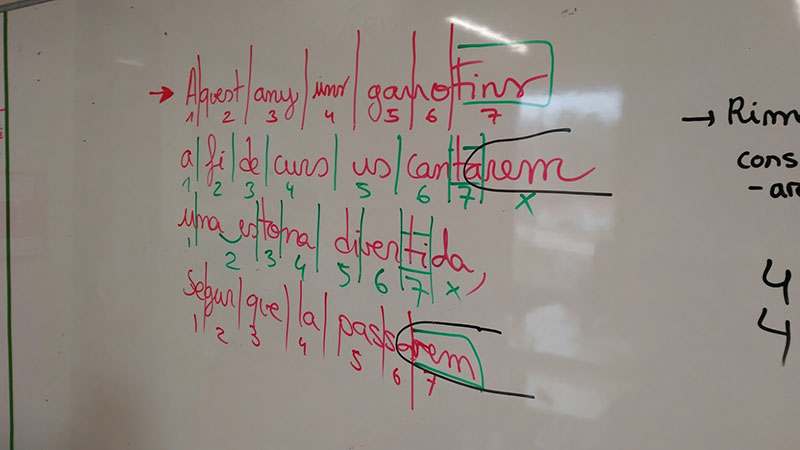 → Aquest any uns ganotins
1 2 3 4 5 6 7
a fi de curs us cantarem
1 2 3 4 5 6 7 x
una estona divertida,
1 2 3 4 5 6 7 x
segur que la passarem
1 2 3 4 5 6 7
→ Rim
cons
4
4